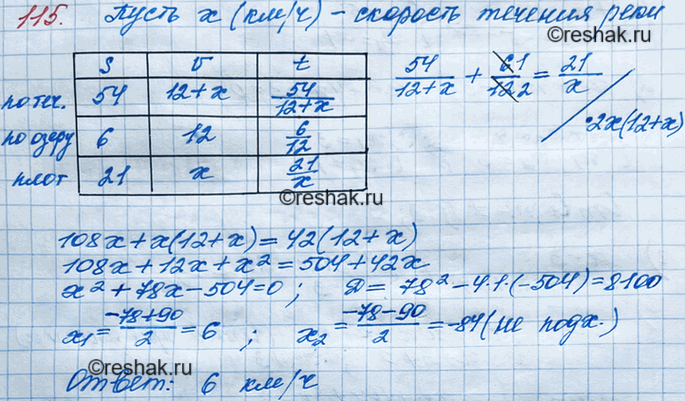 115. Пусть x (км/ч) - скорость течения реки
S v t
по теч. 54 12+x 54/(12+x)
по озеру 6 12 6/12
плот 21 x 21/x
54/(12+x) + 6 1/12 2 = 21/x
·2x(12+x)
©reshak.ru
108x+x(12+x)=42(12+x)
108x+12x+x²=504+42x
x²+78x-504=0; D=78²-4·1·(-504)=8100
x₁=(-78+90)/2=6; x₂=(-78-90)/2=-84 (не подх.)
©reshak.ru
Ответ: 6 км/ч